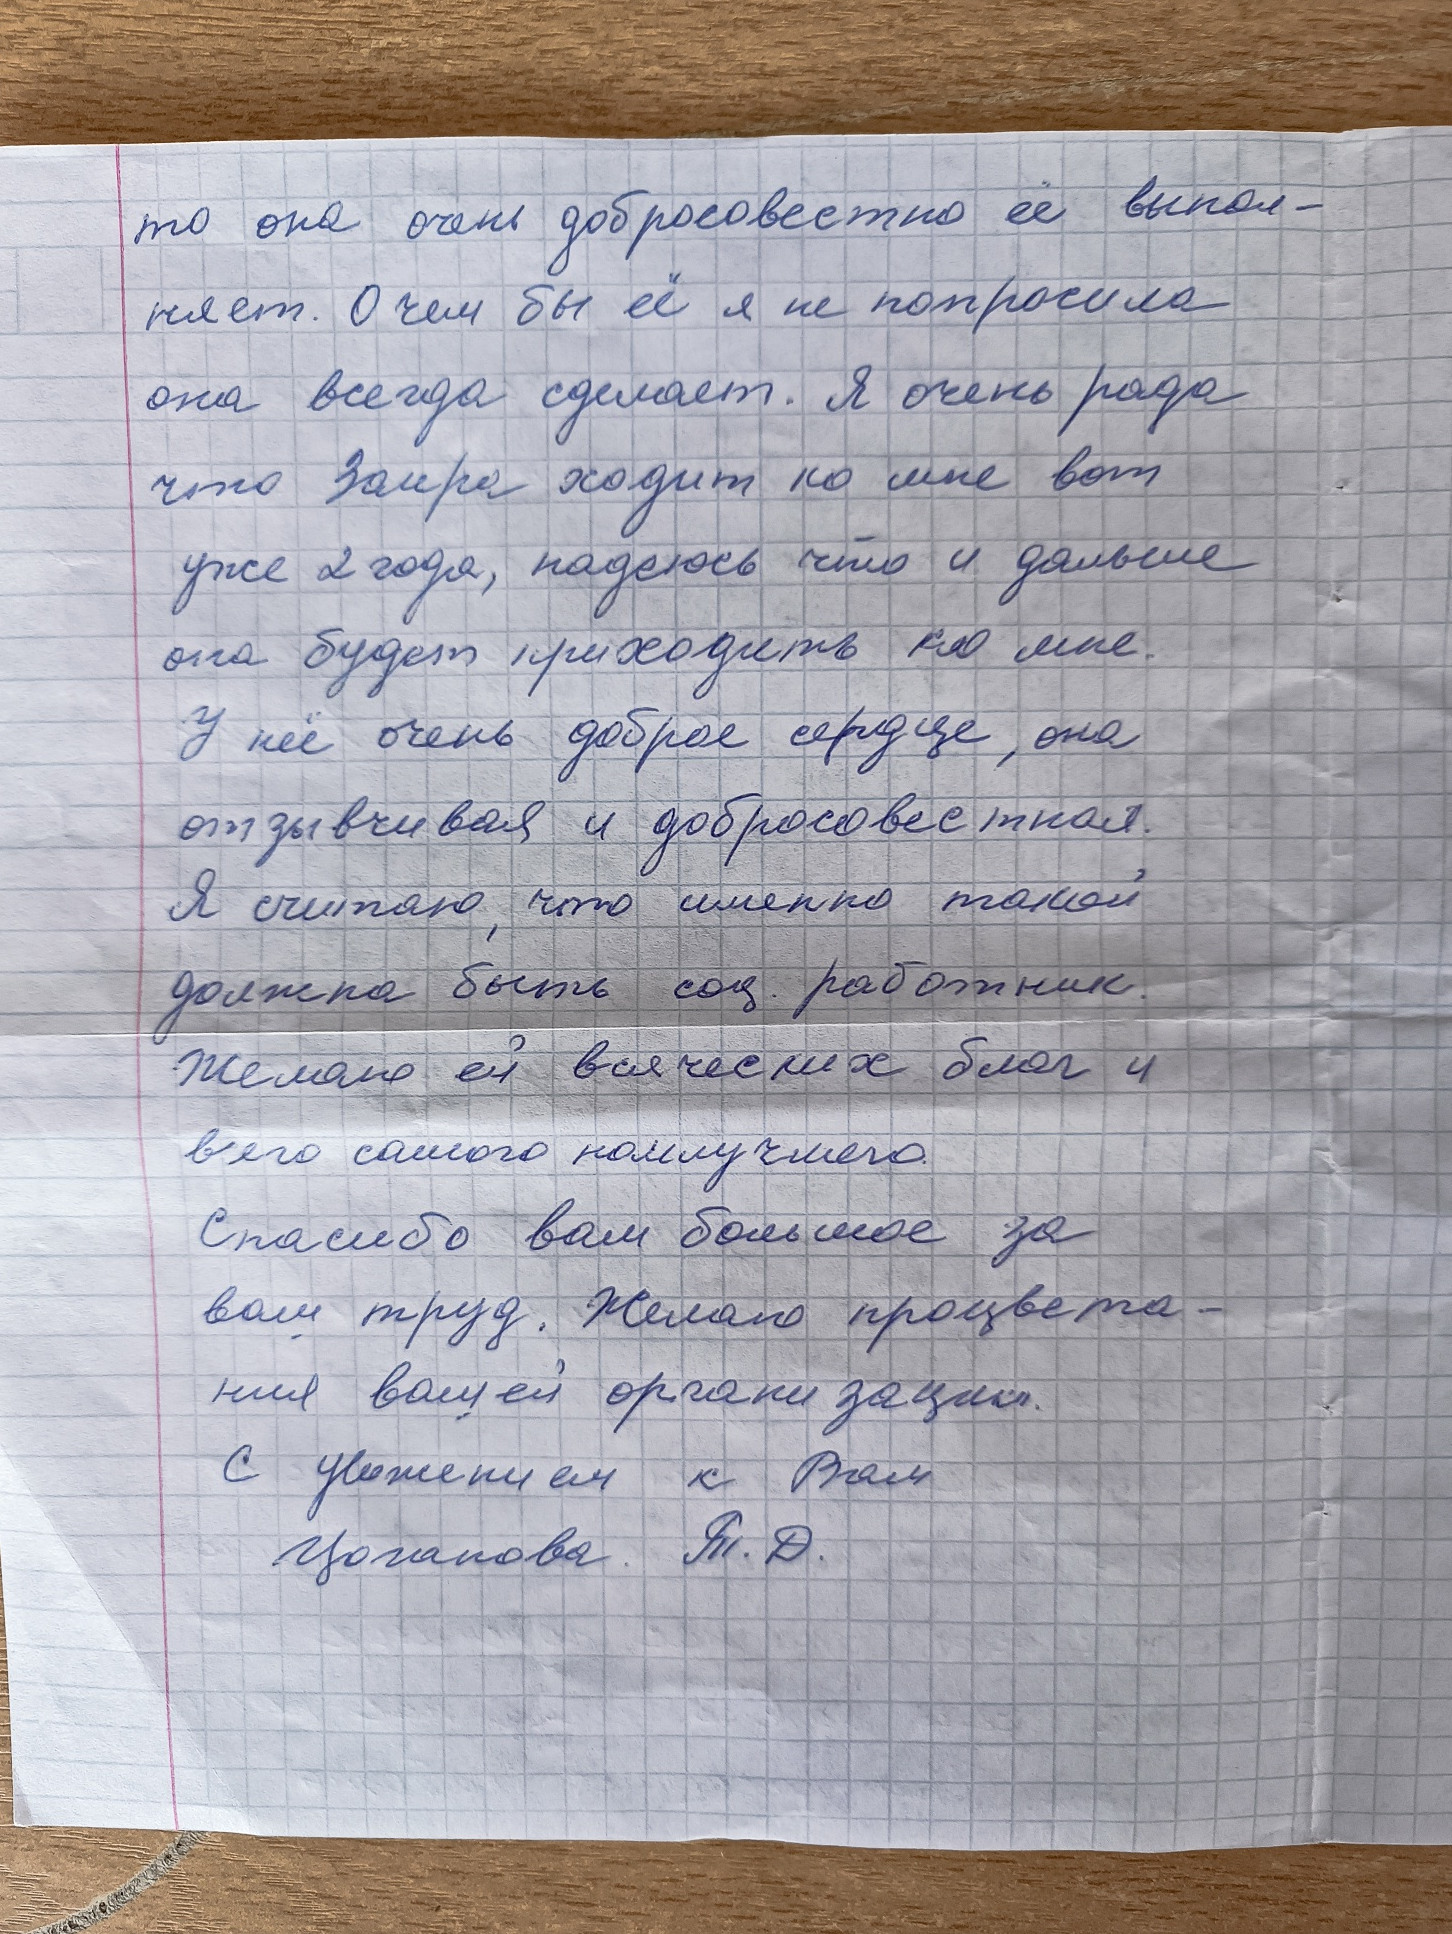 то она очень добросовестно её выпол-
няет. О чем бы её я не попросила
она всегда сделает. Я очень рада
что Заира ходит ко мне вот
уже 2 года, надеюсь что и дальше
она будет приходить ко мне.
У неё очень доброе сердце, она
отзывчивая и добросовестная.
Я считаю, что именно такой
должна быть соц. работник.
Желаю ей всяческих благ и
всего самого наилучшего.
Спасибо вам большое за
ваш труд. Желаю процвета-
ния вашей организации.
С уважением к Вам
Цоганова. Т. Д.